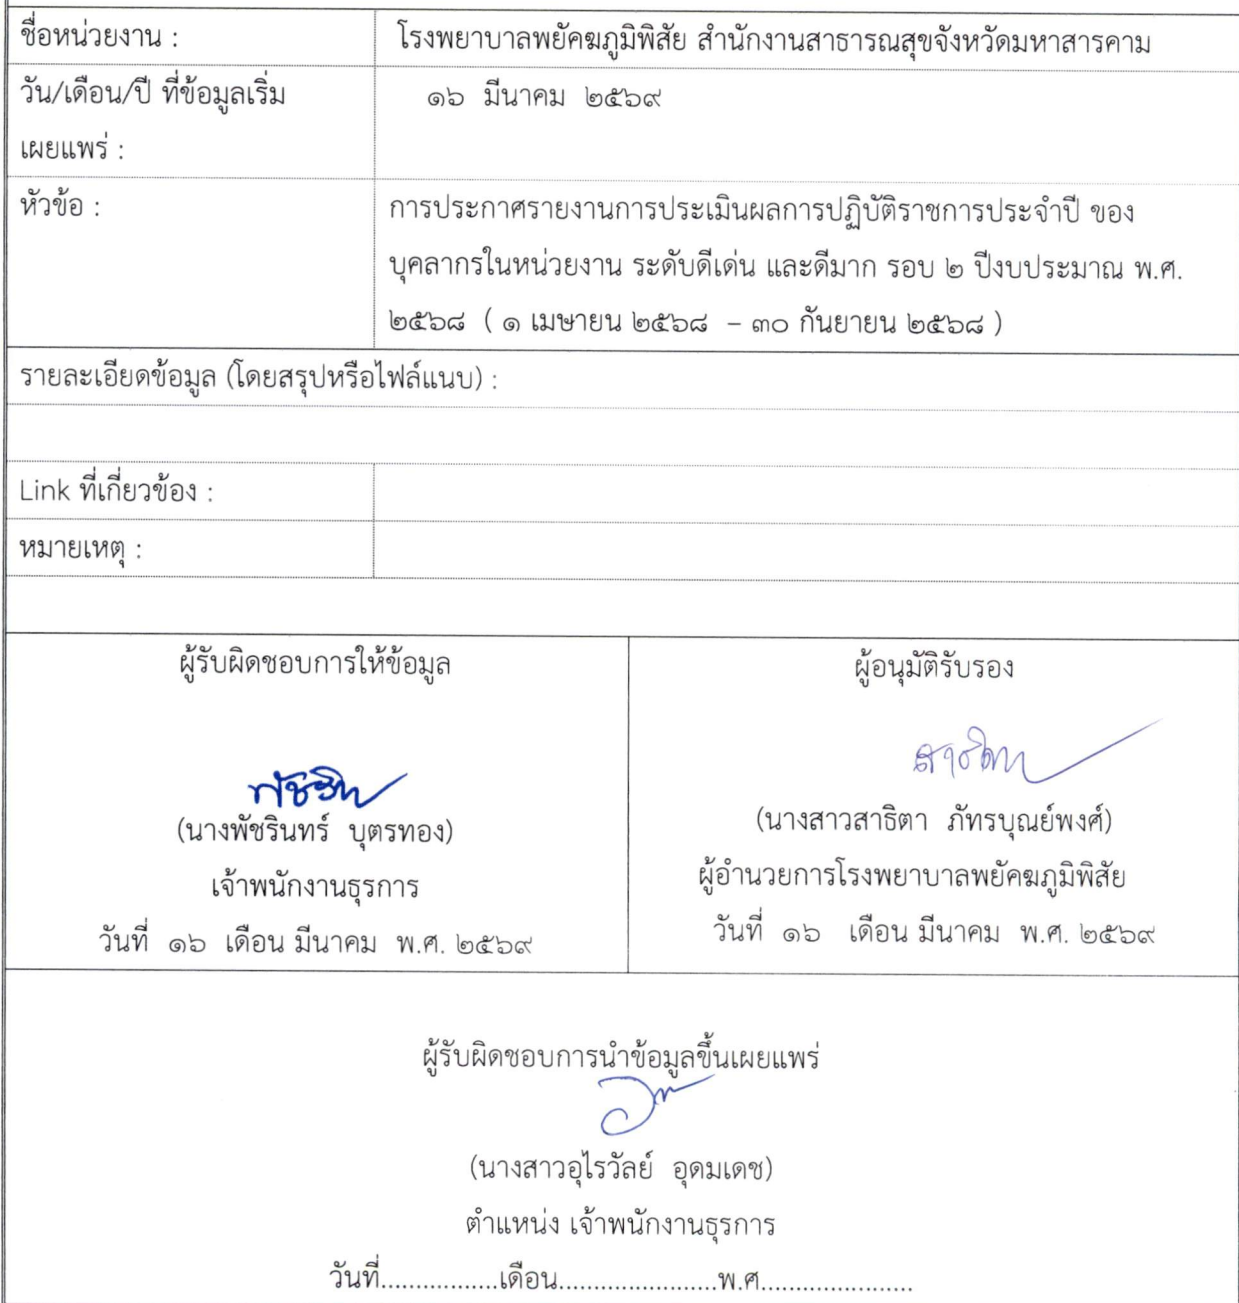 ชื่อหน่วยงาน : โรงพยาบาลพยัคฆภูมิพิสัย สำนักงานสาธารณสุขจังหวัดมหาสารคาม
วัน/เดือน/ปี ที่ข้อมูลเริ่ม ๑๖ มีนาคม ๒๕๖๙
เผยแพร่ :
หัวข้อ : การประกาศรายงานการประเมินผลการปฏิบัติราชการประจำปี ของ
บุคลากรในหน่วยงาน ระดับดีเด่น และดีมาก รอบ ๒ ปีงบประมาณ พ.ศ.
๒๕๖๘ ( ๑ เมษายน ๒๕๖๘ – ๓๐ กันยายน ๒๕๖๘ )
รายละเอียดข้อมูล (โดยสรุปหรือไฟล์แนบ) :
Link ที่เกี่ยวข้อง :
หมายเหตุ :
ผู้รับผิดชอบการให้ข้อมูล
พัชรินทร์
(นางพัชรินทร์ บุตรทอง)
เจ้าพนักงานธุรการ
วันที่ ๑๖ เดือน มีนาคม พ.ศ. ๒๕๖๙
ผู้อนุมัติรับรอง
สาธิตา
(นางสาวสาธิตา ภัทรบุณย์พงศ์)
ผู้อำนวยการโรงพยาบาลพยัคฆภูมิพิสัย
วันที่ ๑๖ เดือน มีนาคม พ.ศ. ๒๕๖๙
ผู้รับผิดชอบการนำข้อมูลขึ้นเผยแพร่
(นางสาวอุไรวัลย์ อุดมเดช)
ตำแหน่ง เจ้าพนักงานธุรการ
วันที่.................เดือน.......................พ.ศ......................